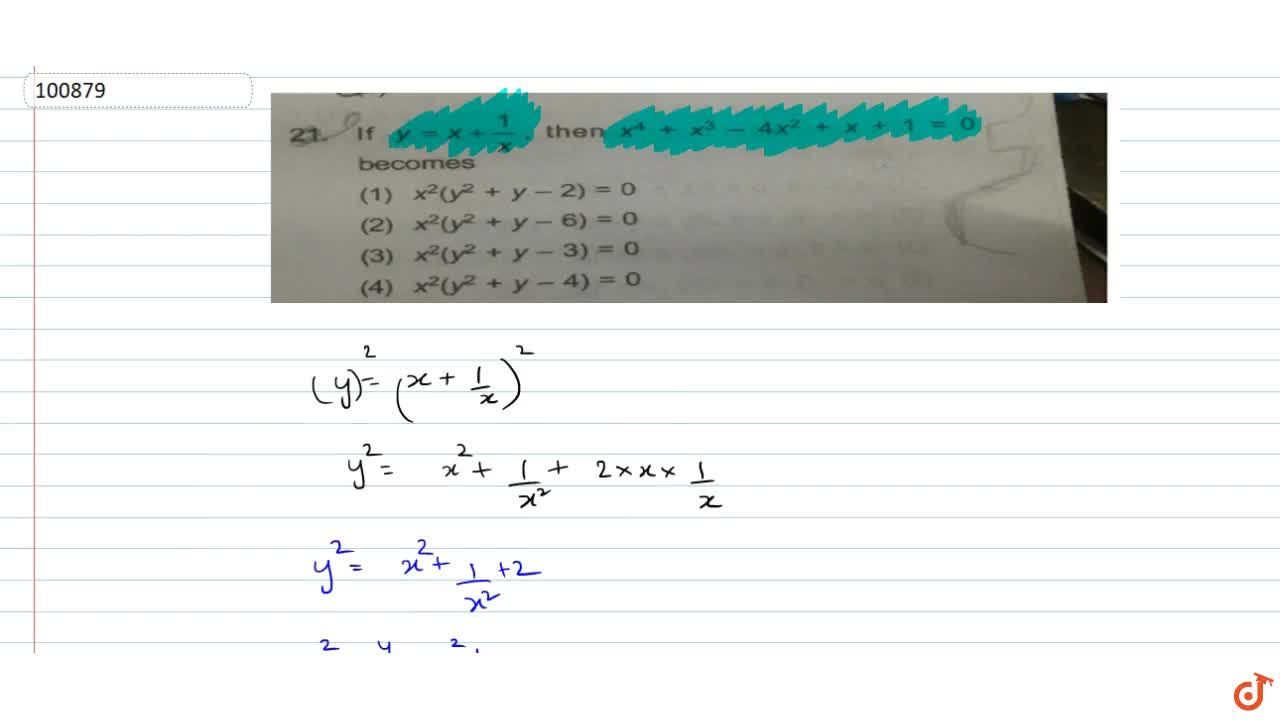 100879
21. If y = x + 1/x, then x⁴ + x³ − 4x² + x + 1 = 0
becomes
(1) x²(y² + y − 2) = 0
(2) x²(y² + y − 6) = 0
(3) x²(y² + y − 3) = 0
(4) x²(y² + y − 4) = 0
(y)² = (x + 1/x)²
y² = x² + 1/x² + 2 × x × 1/x
y² = x² + 1/x² + 2